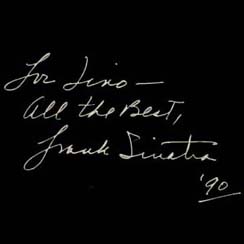 For Lino —
All the Best,
Frank Sinatra
'90